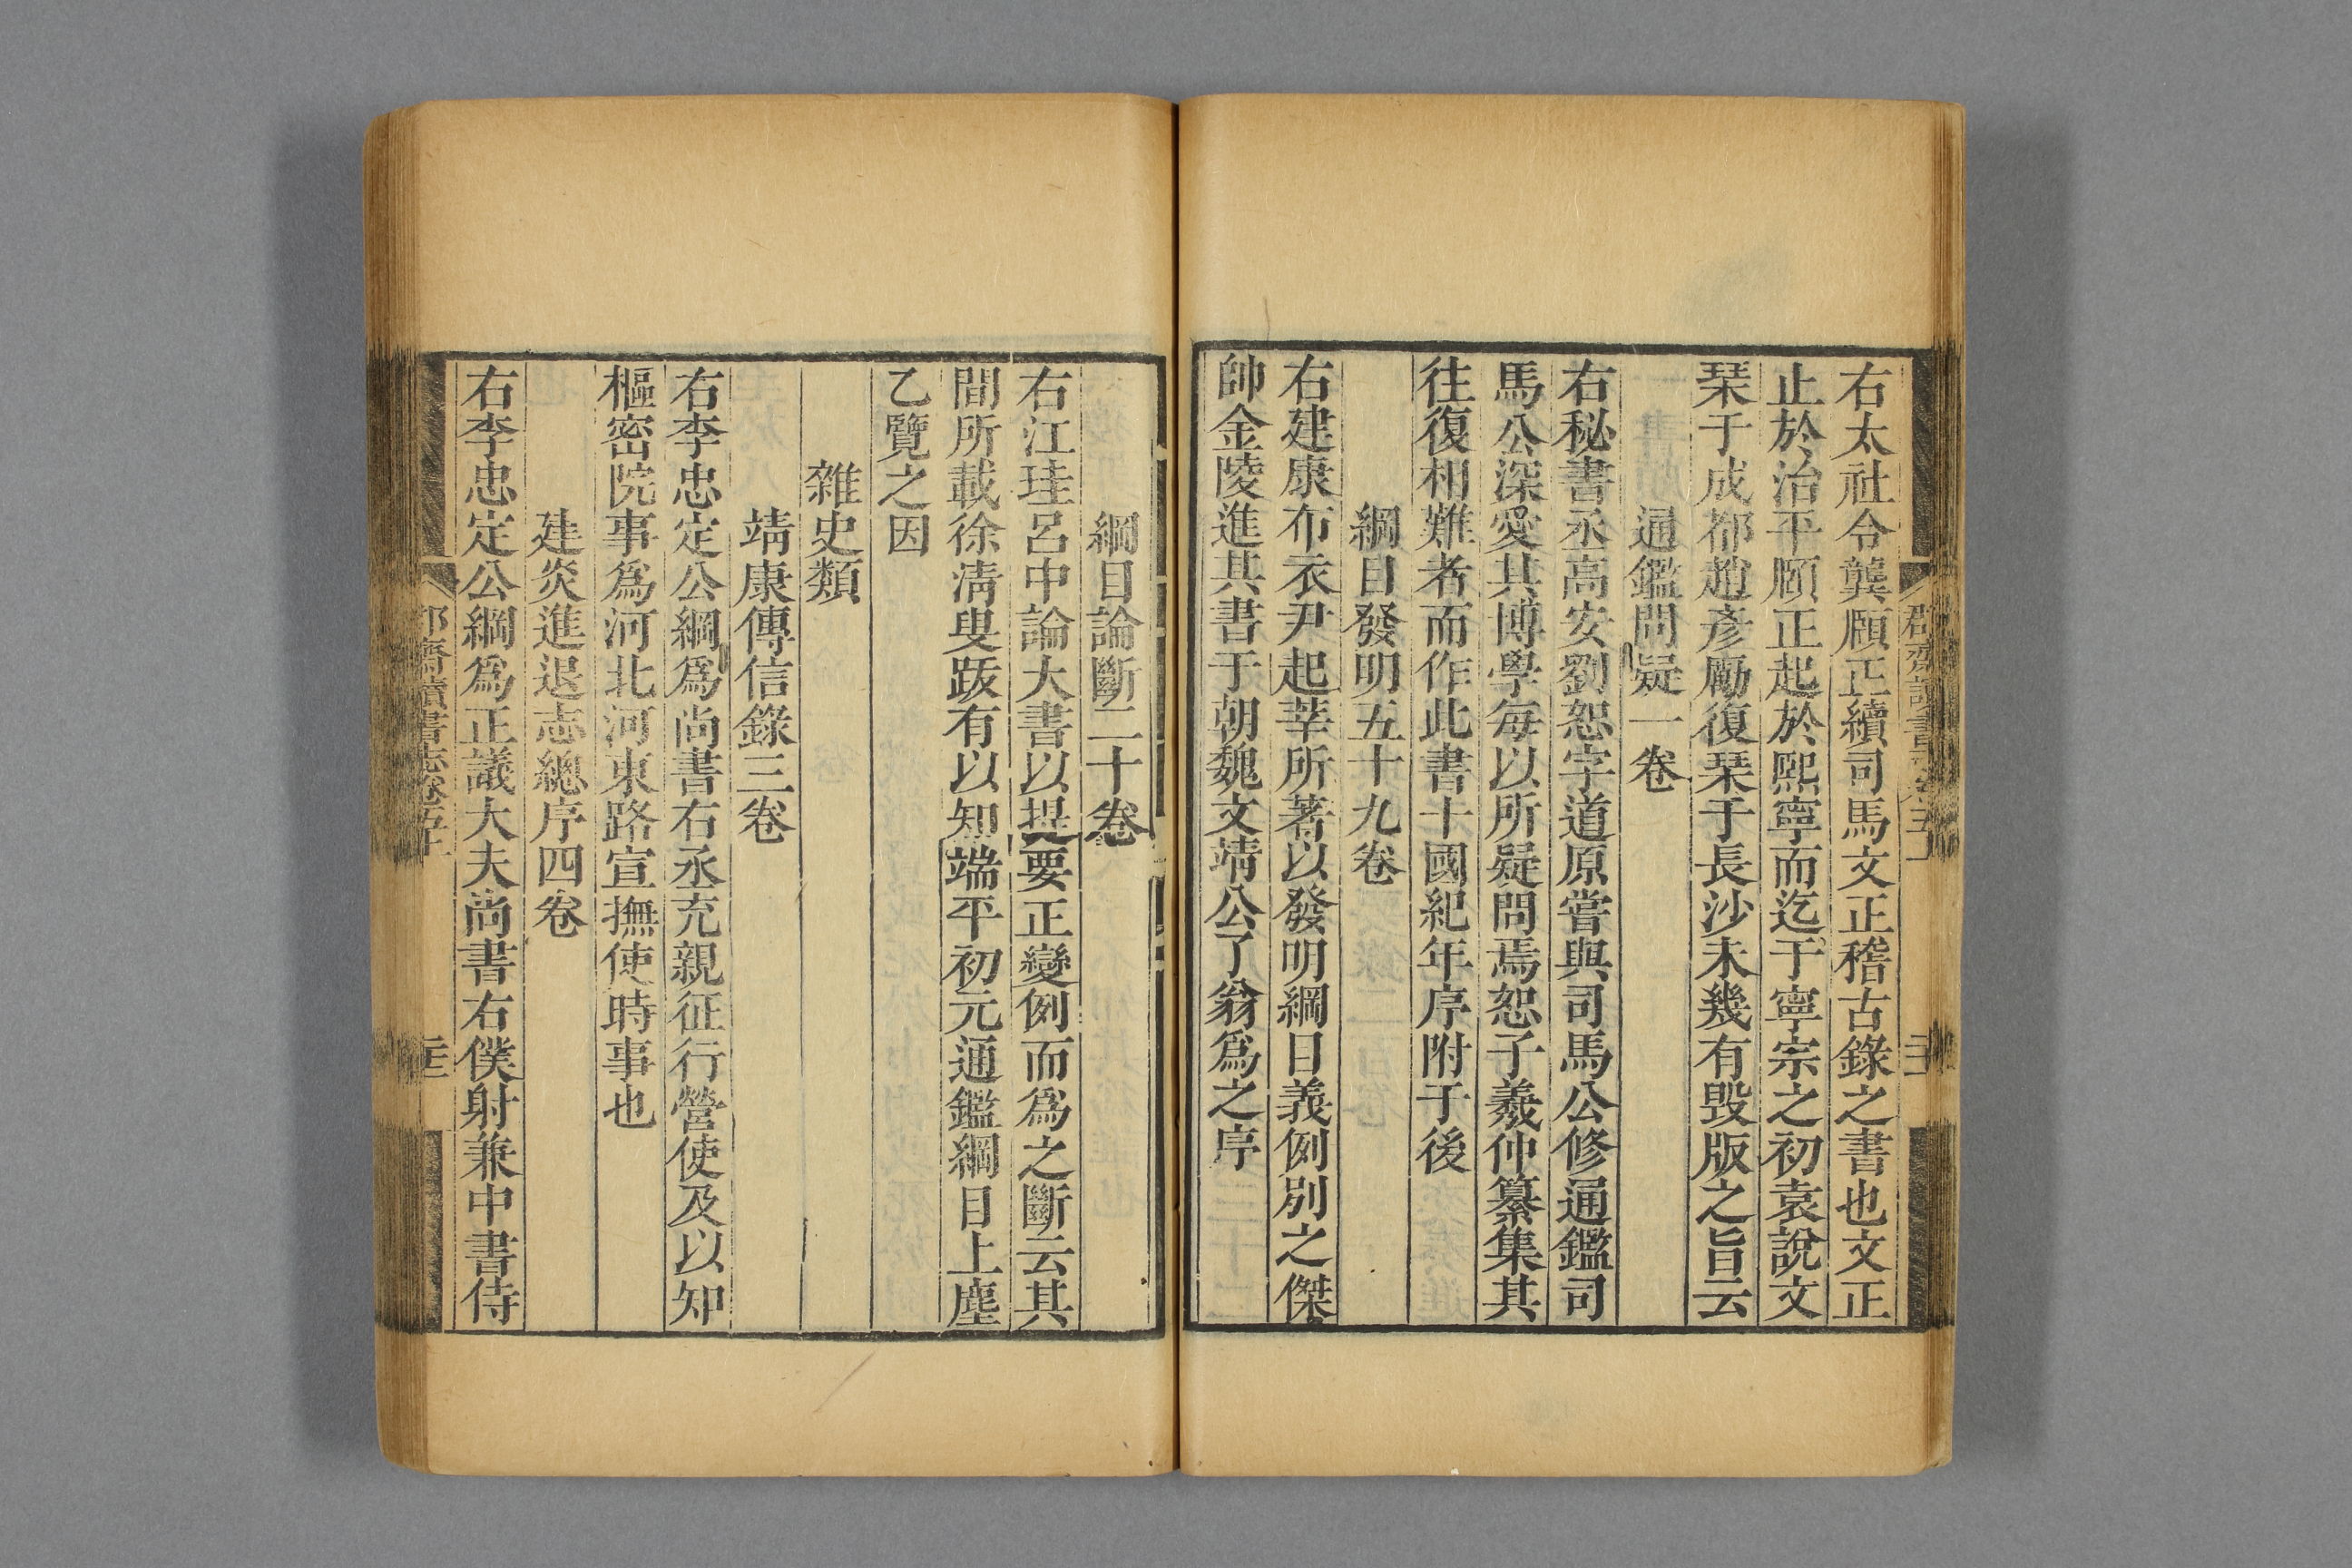 右太社令龔頤正續司馬文正稽古錄之書也文正
止於治平頤正起於熙寧而迄于寧宗之初袁說文
琹于成都趙彥勵復琹于長沙未幾有毀版之旨云
通鑑問疑一卷
右秘書丞高安劉恕字道原嘗與司馬公修通鑑司
馬公深愛其博學每以所疑問焉恕子羲仲纂集其
往復相難者而作此書十國紀年序附于後
綱目發明五十九卷
右建康布衣尹起莘所著以發明綱目義例別之傑
帥金陵進其書于朝魏文靖公了翁爲之序
綱目論斷二十卷
右江珪呂中論大書以提要正變例而爲之斷云其
間所載徐淸叟跋有以知端平初元通鑑綱目上塵
乙覽之因
雜史類
靖康傳信錄三卷
右李忠定公綱爲尚書右丞充親征行營使及以知
樞密院事爲河北河東路宣撫使時事也
建炎進退志總序四卷
右李忠定公綱爲正議大夫尚書右僕射兼中書侍